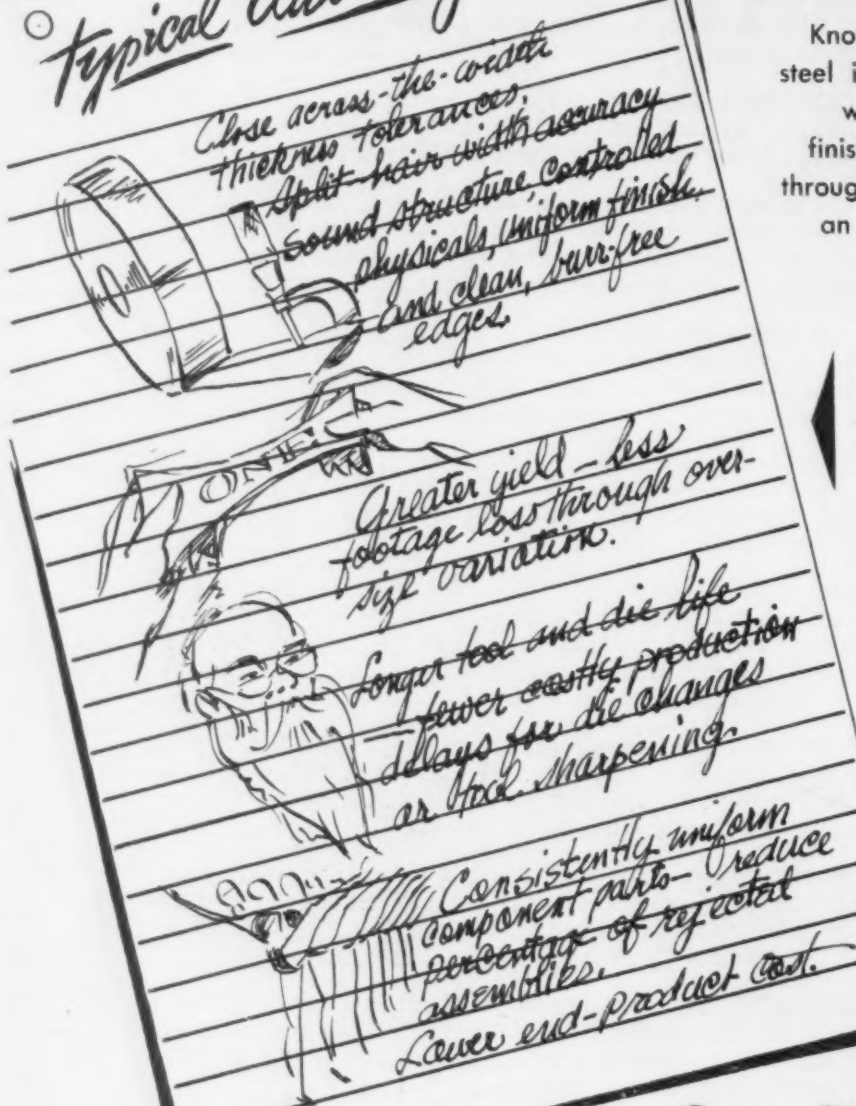 Typical
Close across-the-width
thickness tolerances.
Split-hair width accuracy
Sound structure controlled
physicals, uniform finish
and clean, burr-free
edges.
Greater yield — less
footage loss through over-
size variation.
Longer tool and die life
— fewer costly production
delays for die changes
or tool sharpening.
Consistently uniform
component parts — reduce
percentage of rejected
assemblies.
Lower end-product cost.
Kno
steel i
w
finis
throug
an